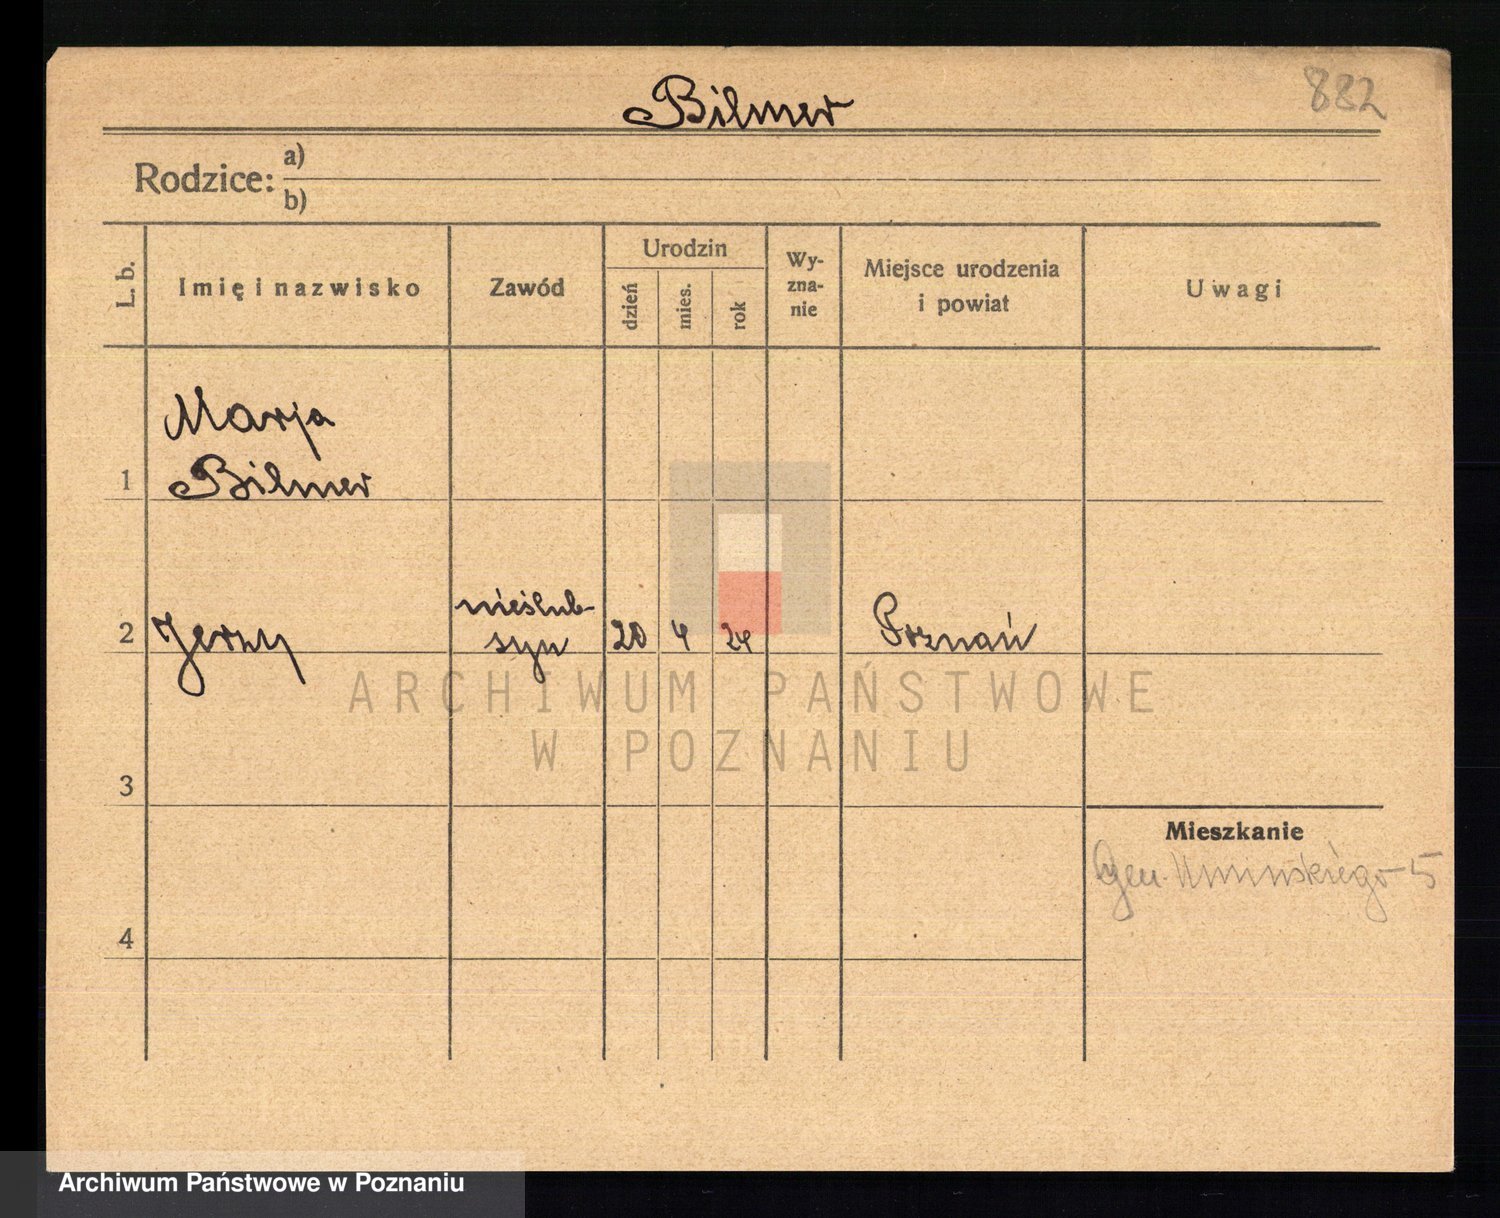 882
Bilmer
Rodzice: a)
b)
L. b.
Imię i nazwisko
Zawód
Urodzin
dzień
mies.
rok
Wy-
zna-
nie
Miejsce urodzenia
i powiat
Uwagi
Marja
1 Bilmer
nieślub-
2 Jerzy syn 20 4 24 Poznań
ARCHIWUM PAŃSTWOWE
W POZNANIU
3
Mieszkanie
Gen. Umińskiego 5
4
Archiwum Państwowe w Poznaniu